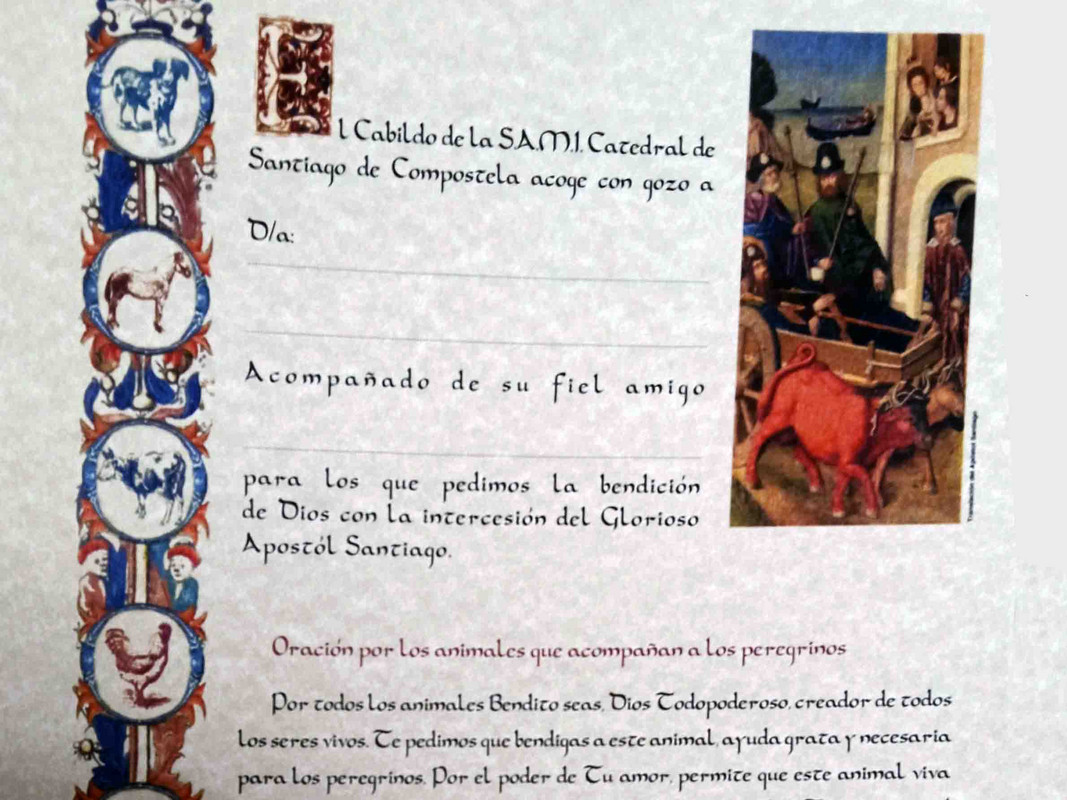 El Cabildo de la S.A.M.I. Catedral de
Santiago de Compostela acoge con gozo a
D/a:
Acompañado de su fiel amigo
para los que pedimos la bendición
de Dios con la intercesión del Glorioso
Apostól Santiago.
Traslación del Apóstol Santiago
Oración por los animales que acompañan a los peregrinos
Por todos los animales Bendito seas, Dios Todopoderoso, creador de todos
los seres vivos. Te pedimos que bendigas a este animal, ayuda grata y necesaria
para los peregrinos. Por el poder de Tu amor, permite que este animal viva